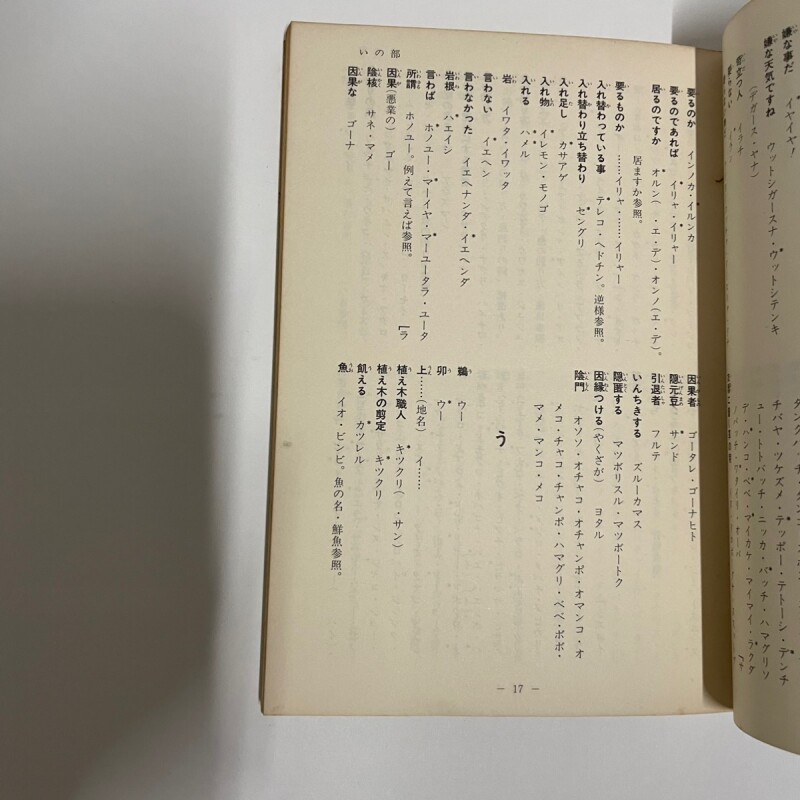 嫌な事だ　イヤイヤ！
嫌な天気ですね　ウットシガースナ・ウットシテンキ
（デガース・ヤナ）
いの部
要るのか　インノカ・イルンカ
要るのであれば　イリャ・イリャー
居るのですか　オルン（・エ・デ）・オンノ（エ・デ）。
居ますか参照。
要るものか　……イリャ・……イリャー
入れ替わっている事　テレコ・ヘドチン。逆様参照。
入れ替わり立ち替わり　セングリ
入れ足し　カサアゲ
入れ物　イレモン・モノゴ
入れる　ハメル
岩　イワタ・イワッタ
言わない　イエヘン
言わなかった　イエヘナンダ・イエヘンダ
岩根　ハエイシ
言わば　ホノユー・マーイヤ・マーユータラ・ユータ［ラ
所謂　ホノユー。例えて言えば参照。
因果（悪業の）　ゴー
陰核　サネ・マメ
因果な　ゴーナ
因果者　ゴータレ・ゴーナヒト
隠元豆　サンド
引退者　フルテ
いんちきする　ズルーカマス
隠匿する　マツボリスル・マツボートク
因縁つける（やくざが）　ヨタル
陰門　オソソ・オチャコ・オチャンポ・オマンコ・オ
メコ・チャコ・チャンポ・ハマグリ・ベベ・ボボ・
マメ・マンコ・メコ
う
鵜　ウー
卯　ウー
上……（地名）　イ……
植え木職人　キツクリ（・サン）
植え木の剪定　キツクリ
飢える　カツレル
魚　イオ・ビンビ。魚の名・鮮魚参照。
— 17 —